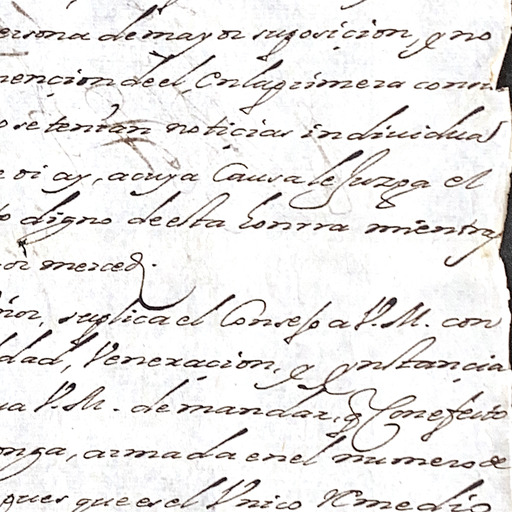 ersona de mayor suposicion, y no
mencion de el, en la primera con
o se tenian noticias individual
e oi ay, a cuya Causa le Juzga el
o digno de esta honrra mientras
or merced.
ñor, suplica el Consejo a V.M. con
ldad, Veneracion, e ynstancia
ua V.M. de mandar, q Con efecto
onga, armada en el numero de
ques que es el Unico Remedio